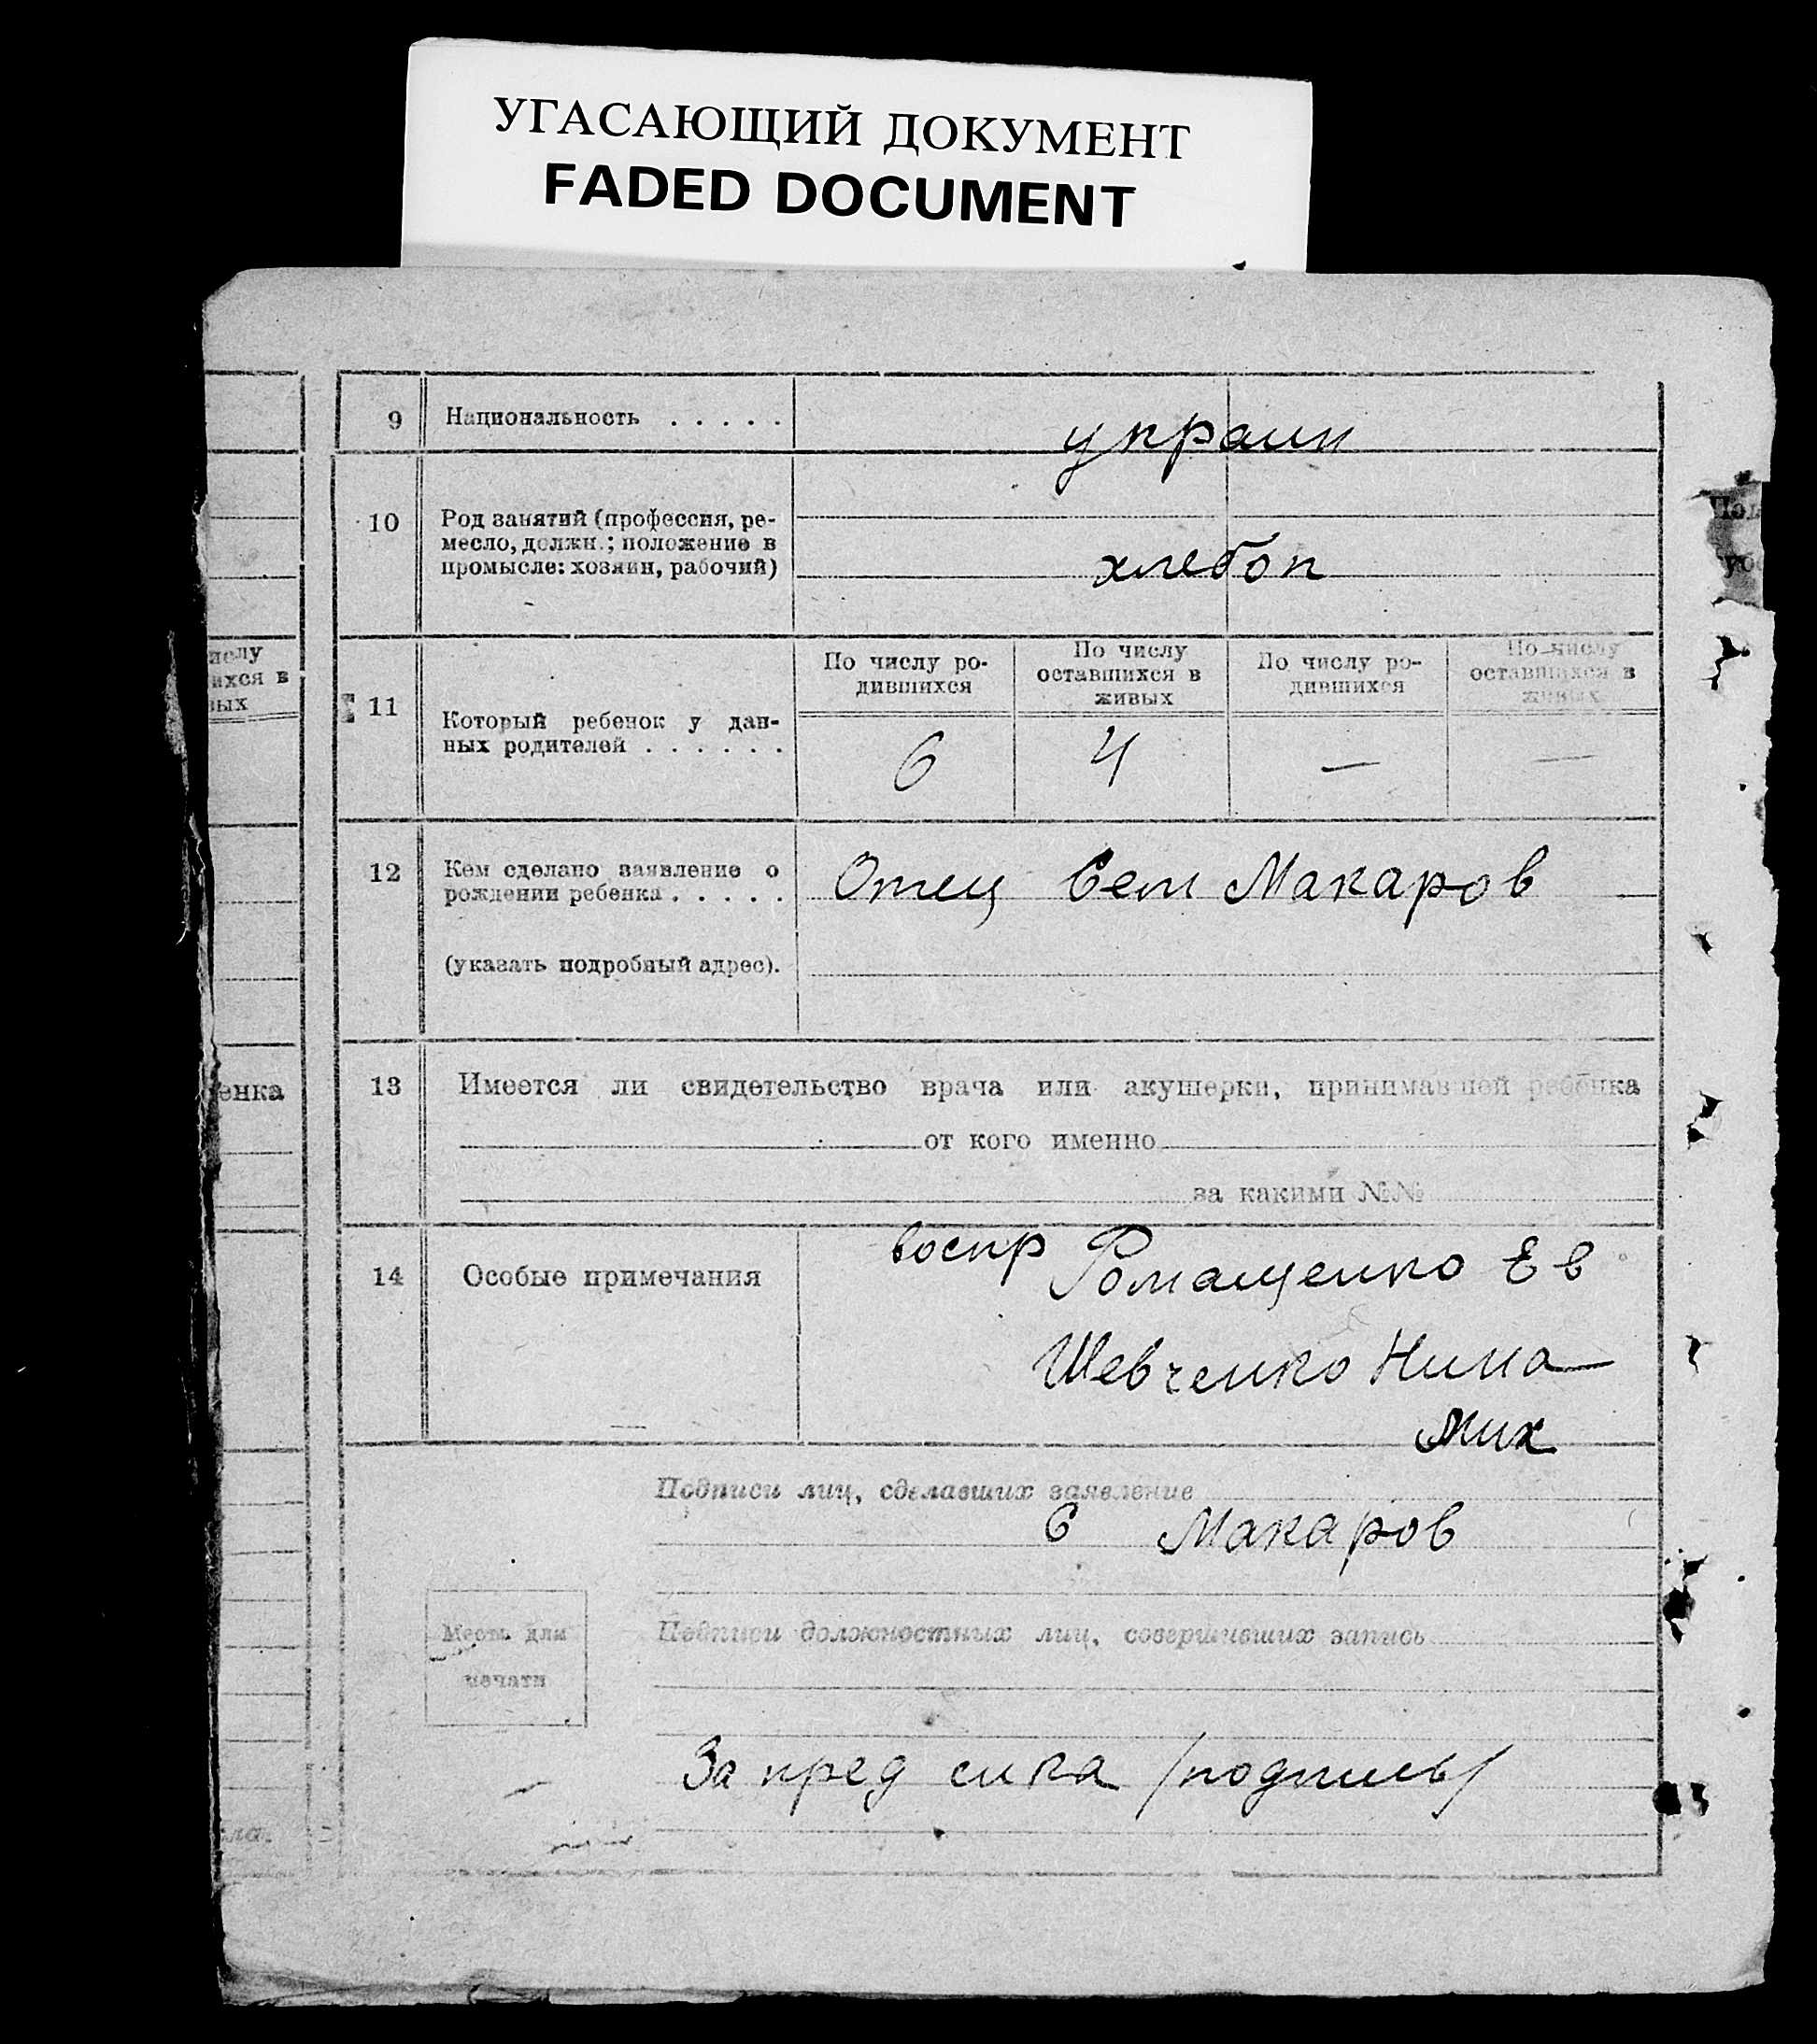 УГАСАЮЩИЙ ДОКУМЕНТ
FADED DOCUMENT
9 Национальность . . . . .
украин
10 Род занятий (профессия, ре-
месло, должн.; положение в
промысле: хозяин, рабочий)
хлебоп
11 Который ребенок у дан-
ных родителей . . . . . .
По числу ро-
дившихся
По числу
оставшихся в
живых
По числу ро-
дившихся
По числу
оставшихся в
живых
6 4 — —
12 Кем сделано заявление о
рождении ребенка . . . . .
(указать подробный адрес).
Отец Сем Макаров
13 Имеется ли свидетельство врача или акушерки, принимавшей ребенка
от кого именно
за какими №№
14 Особые примечания
воспр Ромащенко Ев
Шевченко Нина
Мих
Подписи лиц, сделавших заявление
С Макаров
Место для
печати
Подписи должностных лиц, совершивших запись
За пред сика /подпись/
ислу
ихся в
вых
енка
ла.